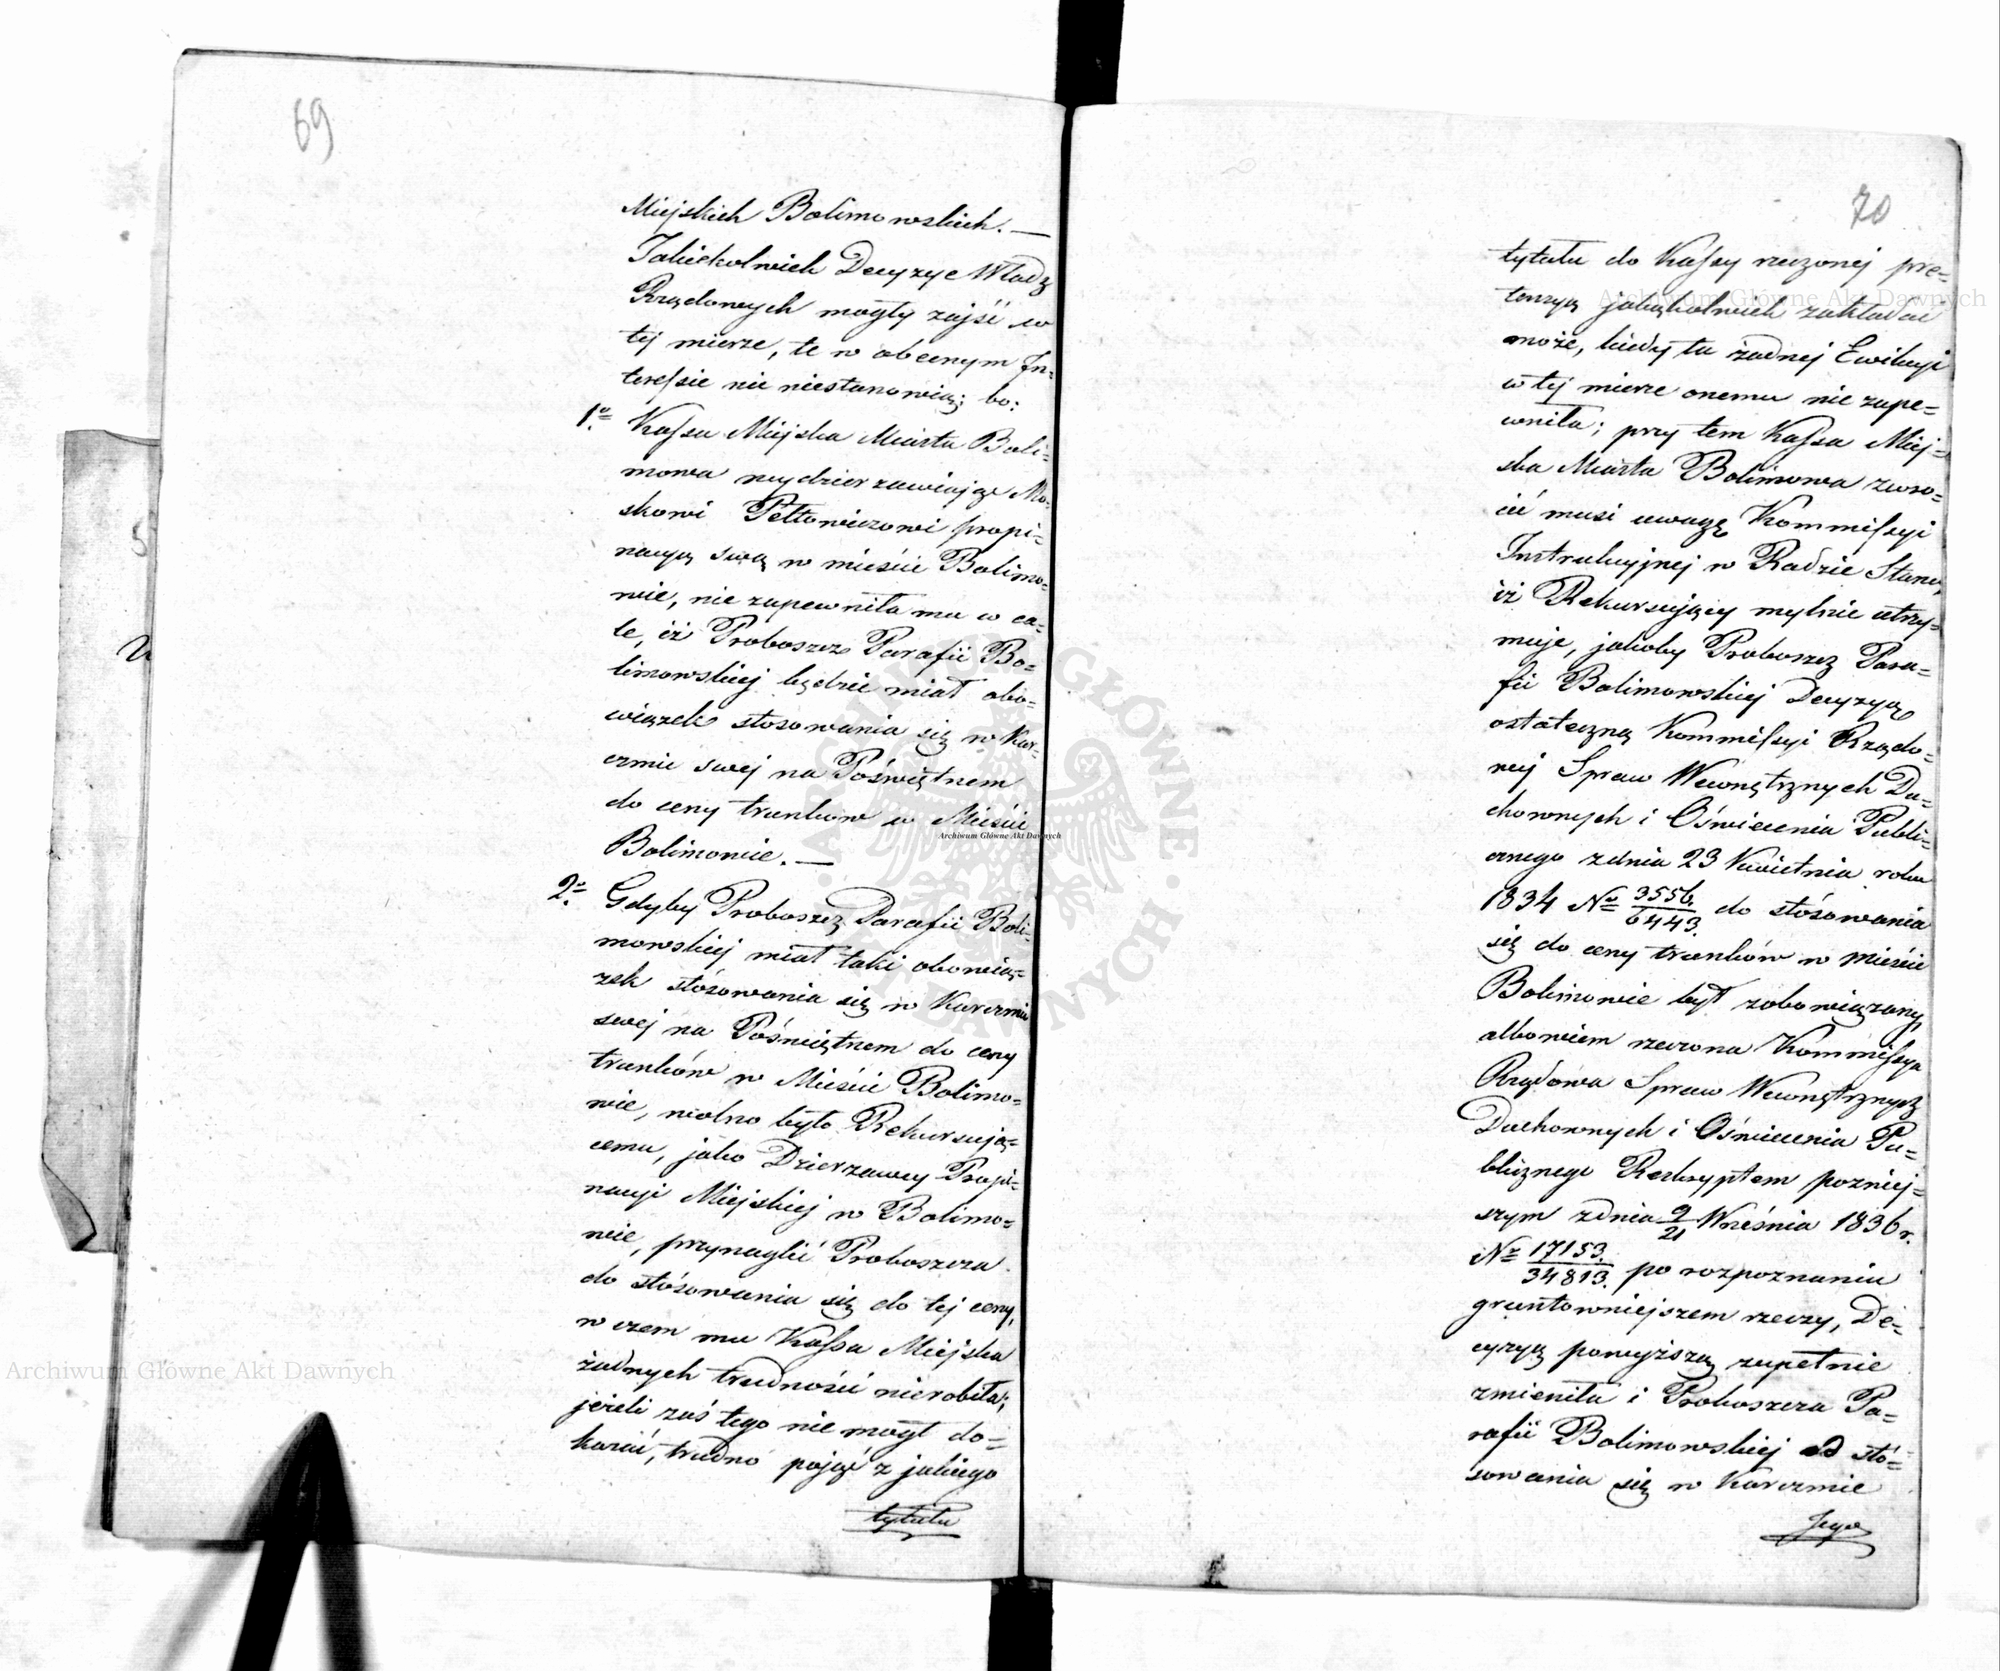 69
Miejskich Bolimowskich. —
Jakiekolwiek Decyzye Władz
Rządowych mogły zajść w
tej mierze, te w obecnym In=
teressie nic niestanowią; bo:
1o Kassa Miejska Miasta Boli=
mowa wydzierzawiając Mo=
skowi Pełtowiczowi propi=
nacyą swą w mieście Bolimo=
wie, nie zapewniła mu w ca=
le, iż Proboszcz Parafii Bo=
limowskiej będzie miał obo=
wiązek stosowania się w Kar=
czmie swej na Poświętnem
do ceny trunków w Mieście
Bolimowie. —
2o Gdyby Proboszcz Parafii Boli=
mowskiej miał taki obowią=
zek stósowania się w Karczmie
swej na Poświętnem do ceny
trunków w Mieście Bolimo=
wie, wolno było Rekursują=
cemu, jako Dzierzawcy Propi=
nacyi Miejskiej w Bolimo=
wie, przynaglić Proboszcza
do stósowania się do tej ceny,
w czem mu Kassa Miejska
żadnych trudności nierobiła;
jeżeli zaś tego nie mógł do=
kazać, trudno pojąć z jakiego
tytułu
70
tytułu do Kassy rzeczonej pre=
tensyą jakąkolwiek zakładać
może, kiedy ta żadnej Ewikcyi
w tej mierze onemu nie zape=
wniła; przy tem Kassa Miej=
ska Miasta Bolimowa zwró=
cić musi uwagę Kommissyi
Instrukcyjnej w Radzie Stanu,
iż Rekursujący mylnie utrzy=
muje, jakoby Proboszcz Para=
fii Bolimowskiej Decyzyą
ostateczną Kommissyi Rządo=
wej Spraw Wewnętrznych Du=
chownych i Oświecenia Publi=
cznego z dnia 23 Kwietnia roku
1834 No 3556/6443 do stósowania
się do ceny trunków w mieście
Bolimowie był zobowiązany,
albowiem rzeczona Kommissya
Rządowa Spraw Wewnętrznych
Duchownych i Oświecenia Pu=
blicznego Reskryptem pozniej=
szym z dnia 9/21 Września 1836 r.
No 17153/34813 po rozpoznaniu
gruntowniejszem rzeczy, De=
cyzyą powyższą zupełnie
zmieniła i Proboszcza Pa=
rafii Bolimowskiej od stó=
sowania się w Karczmie
Jego
Archiwum Główne Akt Dawnych
Archiwum Główne Akt Dawnych
Archiwum Główne Akt Dawnych
ARCHIWUM GŁÓWNE AKT DAWNYCH